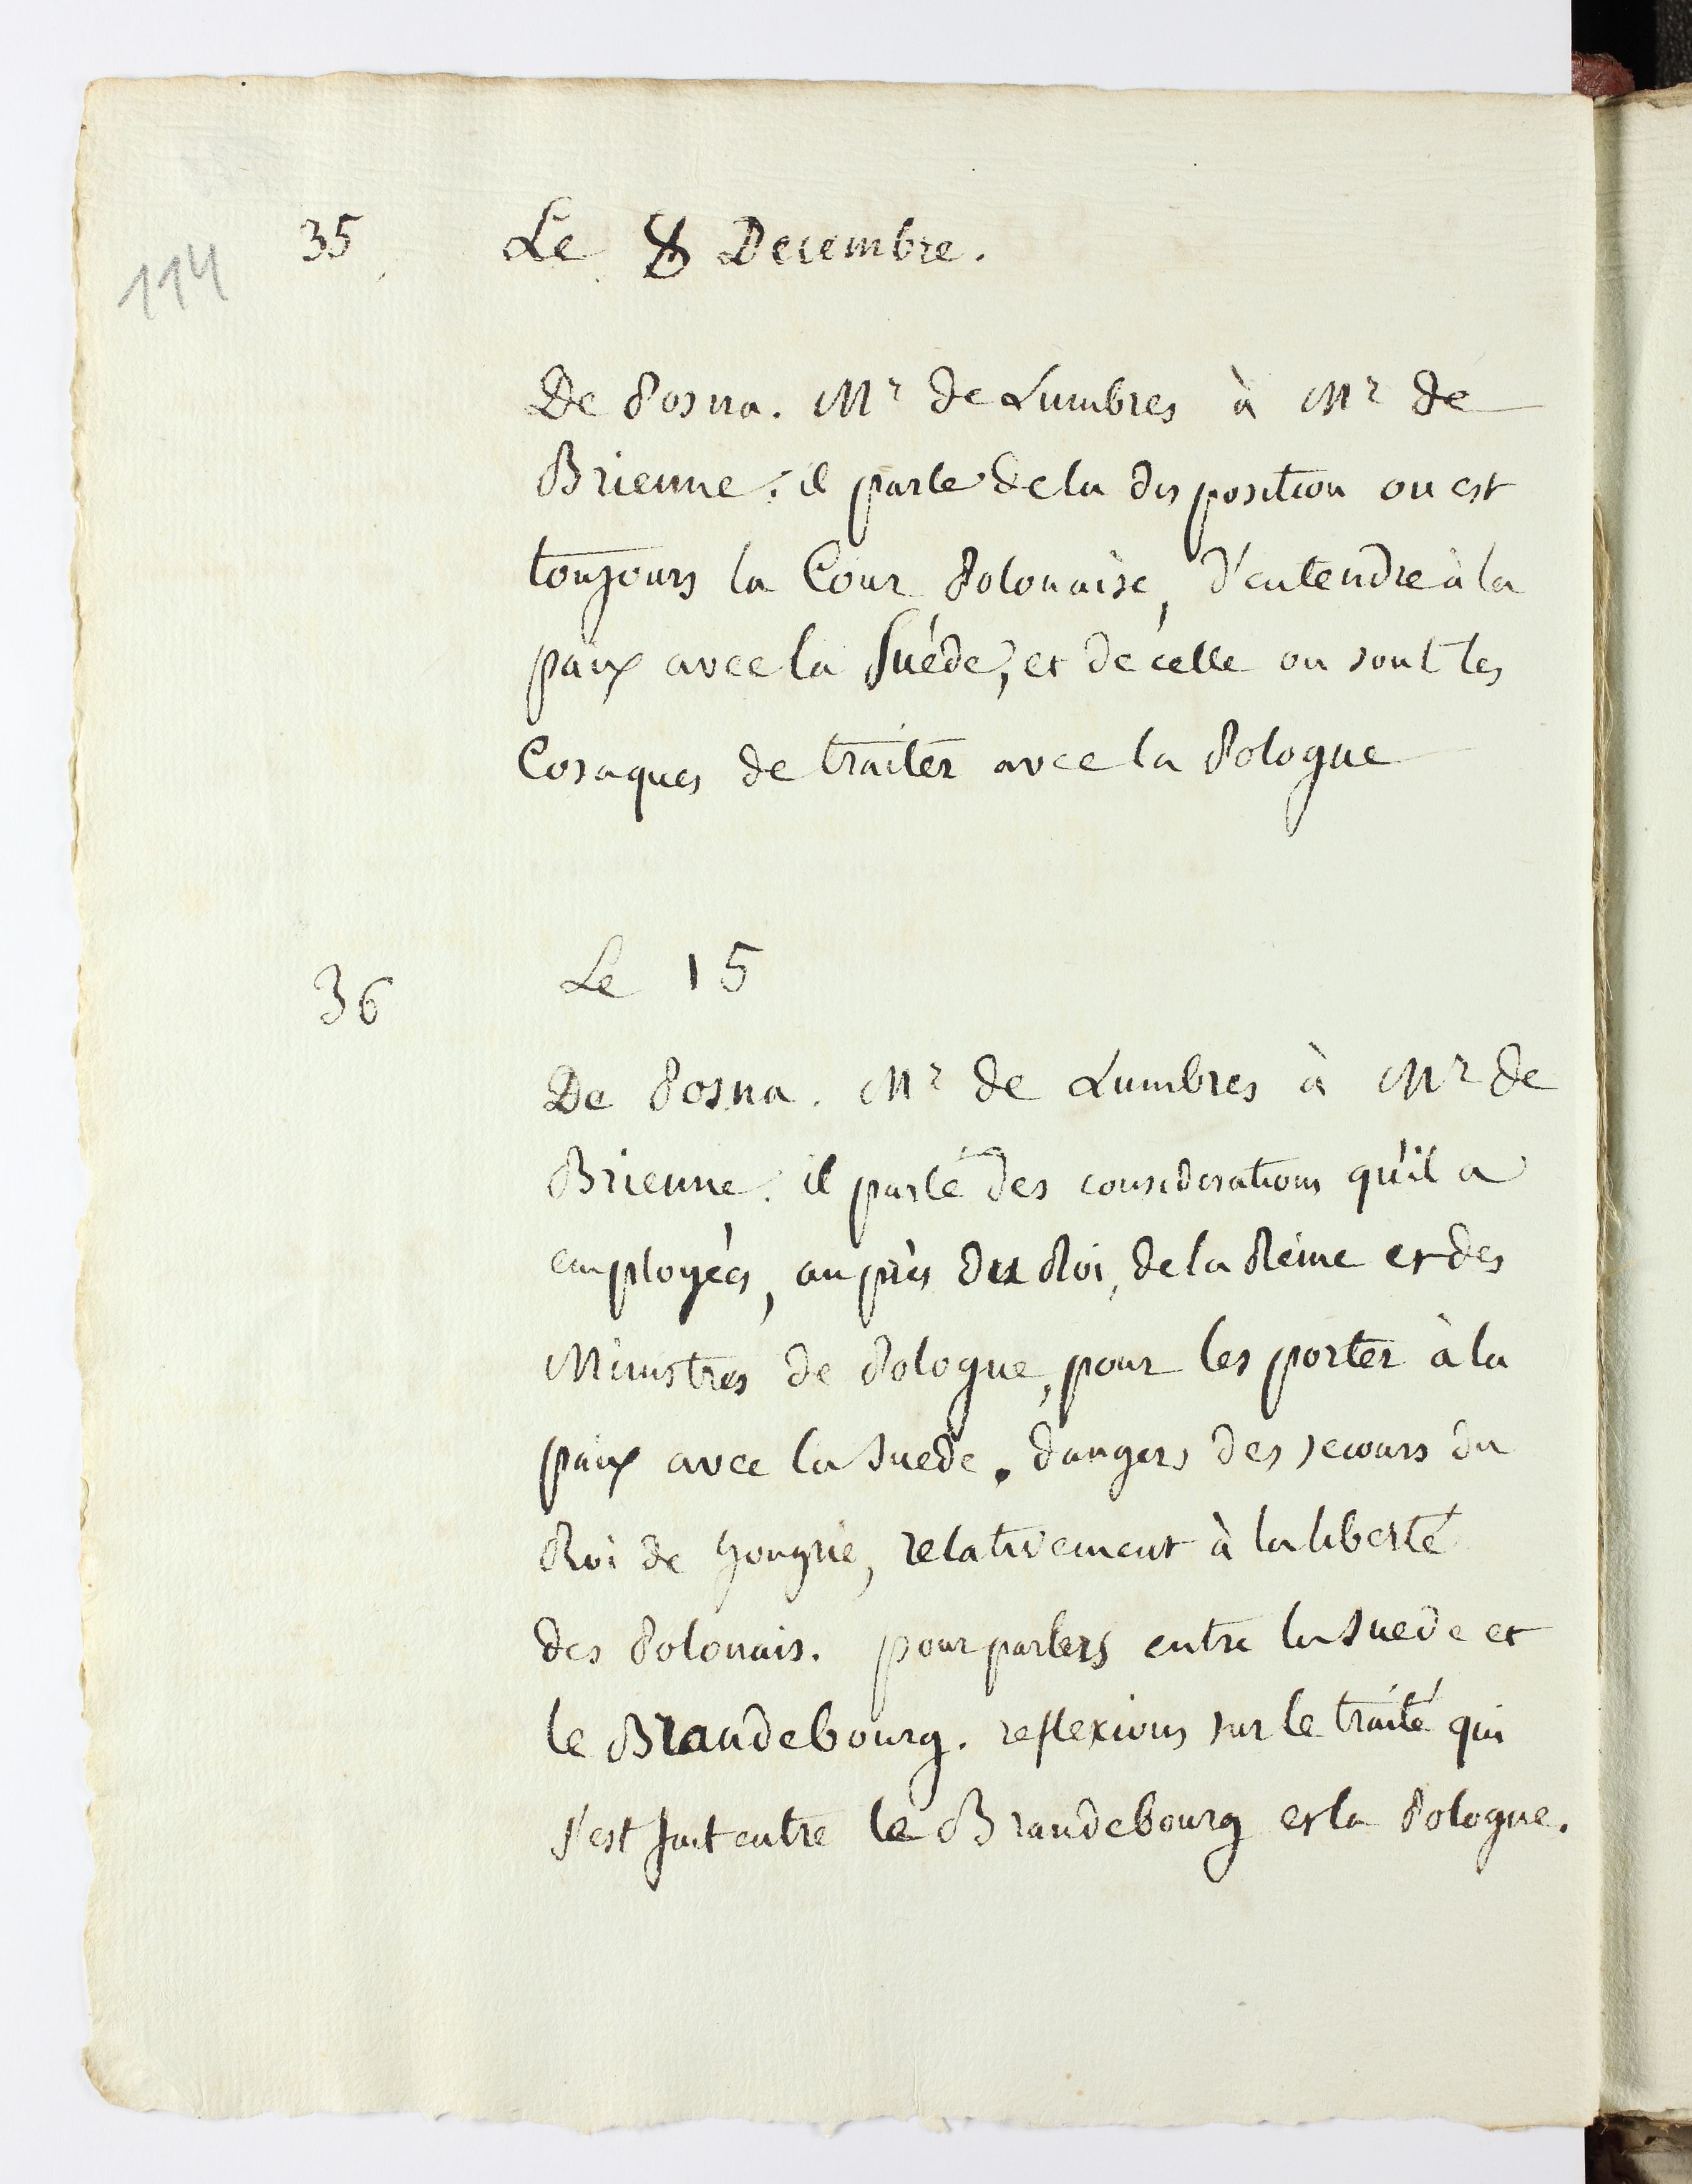 35 Le 8 Decembre.
114
De Posna. Mr de Lumbres à Mr de
Brienne. il parle de la disposition ou est
toujours la Cour Polonaise, d'entendre à la
paix avec la Suéde, et de celle ou sont les
Cosaques de traiter avec la Pologne
36 Le 15
De Posna. Mr de Lumbres à Mr de
Brienne. il parle des considerations qu'il a
employées, auprès du Roi, de la Reine et des
Ministres de Pologne, pour les porter à la
paix avec la Suede. dangers des secours du
Roi de hongrie, relativement à la liberté
des Polonais. pourparlers entre la Suede et
le Brandebourg. reflexions sur le traité qui
s'est fait entre le Brandebourg et la Pologne.